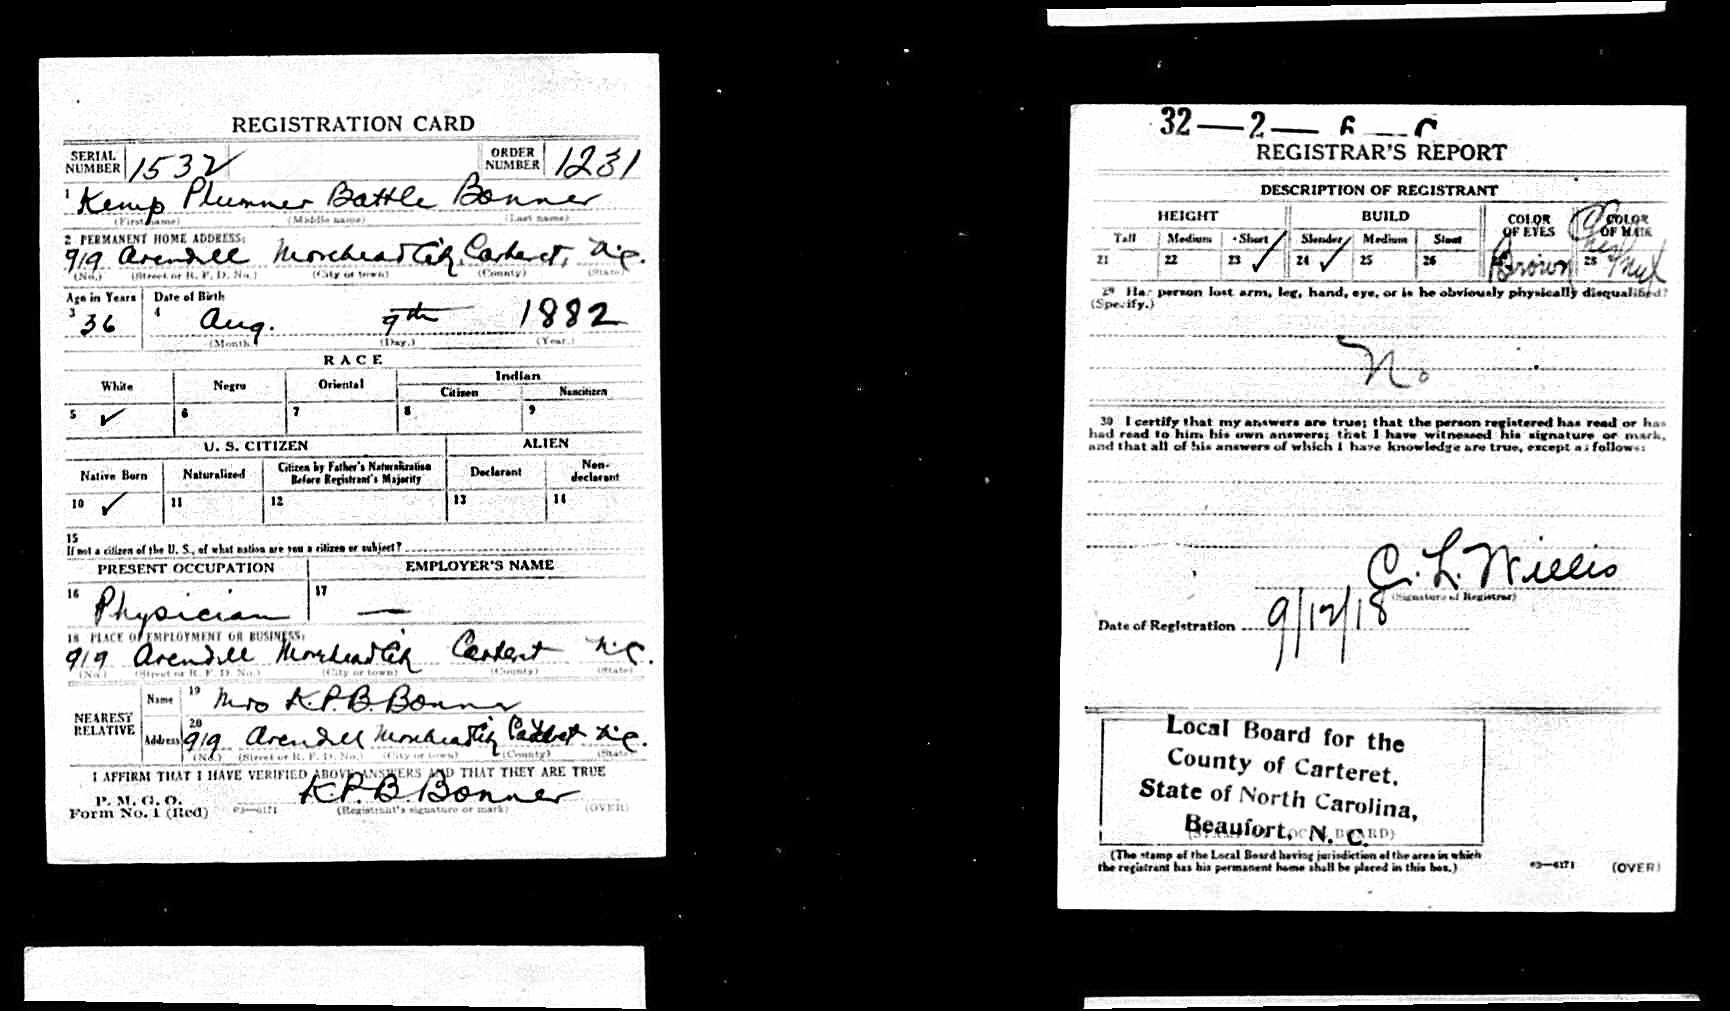 REGISTRATION CARD
SERIAL NUMBER 1532 ORDER NUMBER 1231
1 Kemp Plummer Battle Bonner
(First name) (Middle name) (Last name)
2 PERMANENT HOME ADDRESS:
919 Arendell Morehead City, Carteret, N.C.
(No.) (Street or R. F. D. No.) (City or town) (County) (State)
Age in Years Date of Birth
3 36 4 Aug. 9th 1882
(Month.) (Day.) (Year.)
RACE
White Negro Oriental Indian
Citizen Noncitizen
5 ✓ 6 7 8 9
U. S. CITIZEN ALIEN
Native Born Naturalized Citizen by Father's Naturalization Before Registrant's Majority Declarant Non-declarant
10 ✓ 11 12 13 14
15
If not a citizen of the U. S., of what nation are you a citizen or subject?
PRESENT OCCUPATION EMPLOYER'S NAME
16 Physician 17 —
18 PLACE OF EMPLOYMENT OR BUSINESS:
919 Arendell Morehead City Carteret N.C.
(No.) (Street or R. F. D. No.) (City or town) (County) (State)
NEAREST RELATIVE Name 19 Mrs K.P.B. Bonner
Address 20 919 Arendell Morehead City Carteret N.C.
(No.) (Street or R. F. D. No.) (City or town) (County) (State)
I AFFIRM THAT I HAVE VERIFIED ABOVE ANSWERS AND THAT THEY ARE TRUE
P. M. G. O.
Form No. 1 (Red) 03—6171 K.P.B. Bonner
(Registrant's signature or mark) (OVER)
32—2—6—C
REGISTRAR'S REPORT
DESCRIPTION OF REGISTRANT
HEIGHT BUILD COLOR OF EYES COLOR OF HAIR
Tall Medium Short Slender Medium Stout
21 22 23 ✓ 24 ✓ 25 26 Brown 28 Chesnut
29 Has person lost arm, leg, hand, eye, or is he obviously physically disqualified?
(Specify.)
No
30 I certify that my answers are true; that the person registered has read or has
had read to him his own answers; that I have witnessed his signature or mark,
and that all of his answers of which I have knowledge are true, except as follows:
C. L. Willis
(Signature of Registrar)
Date of Registration 9/12/18
Local Board for the
County of Carteret.
State of North Carolina,
Beaufort, N. C.
(The stamp of the Local Board having jurisdiction of the area in which
the registrant has his permanent home shall be placed in this box.)
03—6171 (OVER)